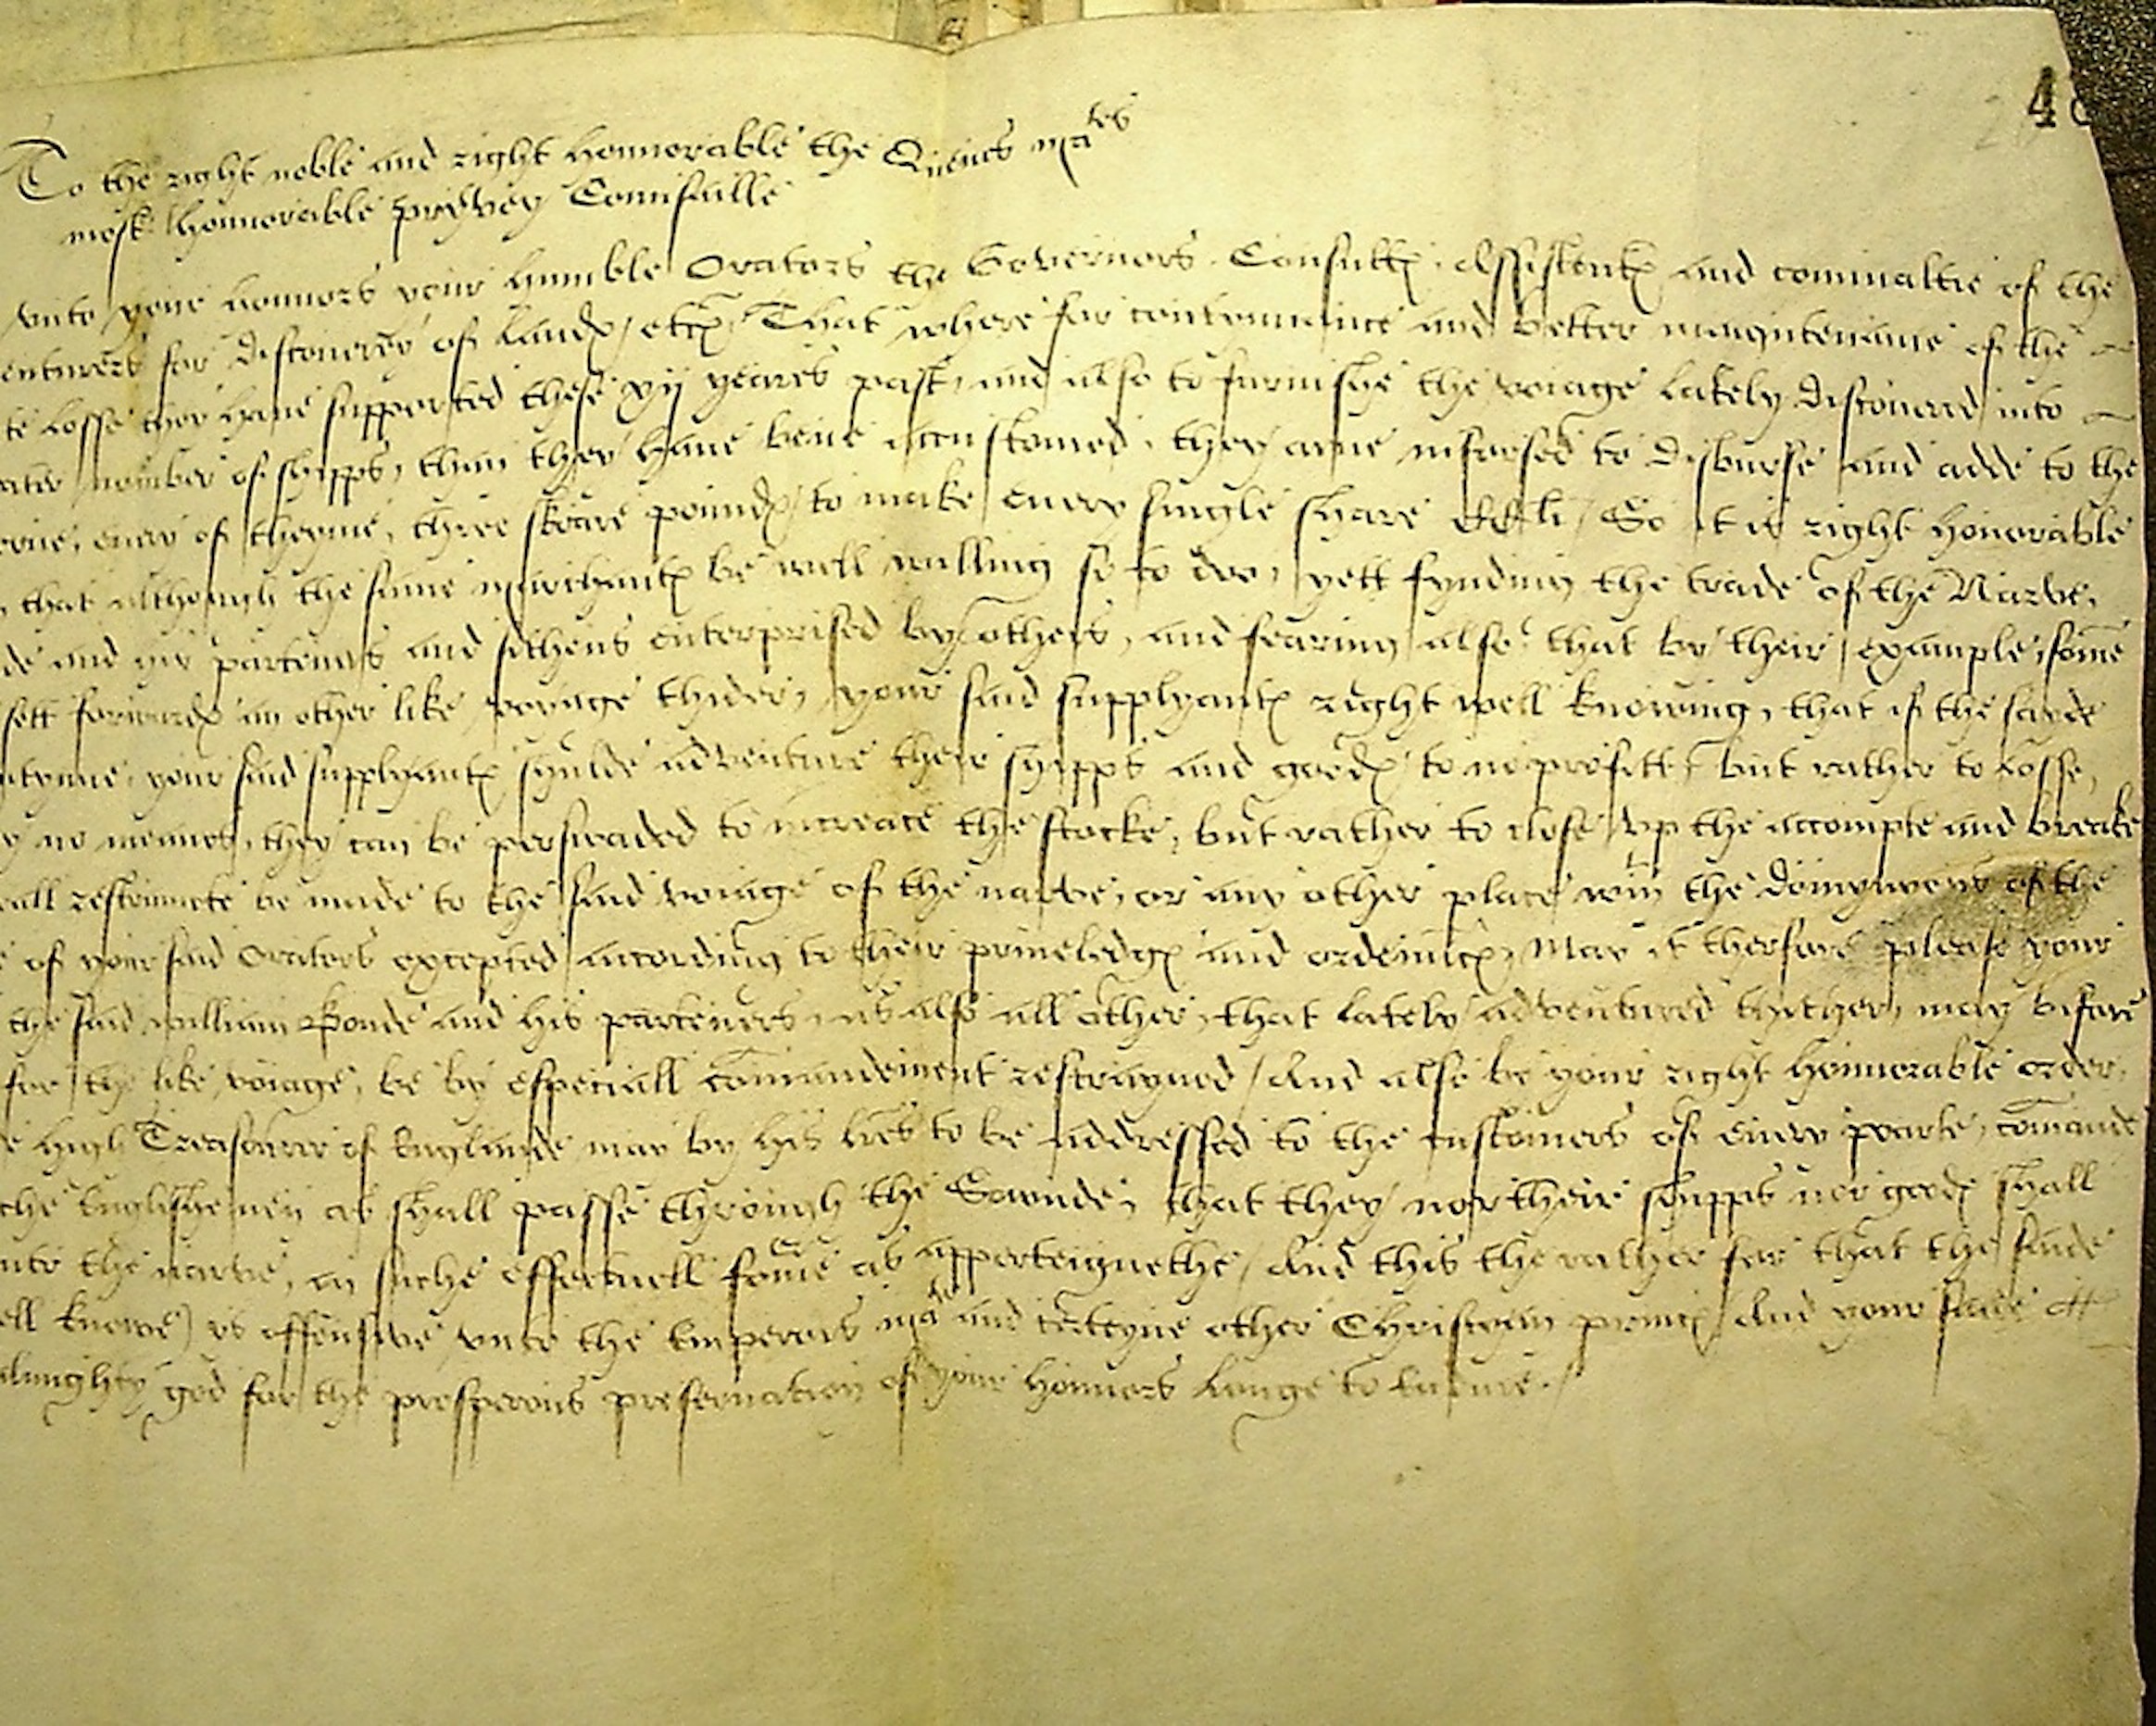 40
To the right noble and right honnorable the Quenes mates
most honnorable prevey Counsaille
vnto your honnors your humble Orators the Governors Consullꝭ Assistentꝭ and cominaltie of the
enturers for discouerey of landꝭ / etcꝭ That where for contynuance and better mayntenaunce of the
te losse they haue supported these xij yeares past, and also to furnishe the voiage lately discouered into
ater nomber of shipps, than they haue bene accustomed, they arne inforsed to disburse and adde to the
euery of theyme, three skore poundꝭ to make euery single share li / So it is right honorable
that although the same marchantꝭ be well willing so to doo, yett fynding the trade of the Narve,
de and his parteners and sithens enterprised by others, and fearing also that by their example, some
sett forwardꝭ an other like voyage thider, your said supplyantꝭ right well knowing, that if the sayde
ntynue, your said supplyantꝭ shulde adventure their shipps and goodꝭ to no profitt, but rather to losse,
y no meanes, they can be perswaded to increace the stocke, but rather to close vp the accompte and breake
all restrainte be made to the said voiage of the narve, or any other place wtin the domynyons of the
of your said Orators excepted according to their priueledgꝭ and ordenncꝭ, May it therfore please your
the said william Bonde and his parteners, as also all other, that lately adventured thither, may before
for the like voiage, be by especiall comaundement restrayned / And also by your right honnorable order,
e high Treasourer of Englande may by his lres to be addressed to the customers of euery porte, comaunde
che Englishemen as shall passe through the Sownde, that they nor their shipps nor goodꝭ shall
nto the narve, in suche effectuell forme as apperteignethe / And this the rather for that the saide
ell knowe) is offensive vnto the Emperors mate and certeyne other Christian princꝭ / And your saide
almighty god for the prosperous preseruation of your honnors longe to endure./